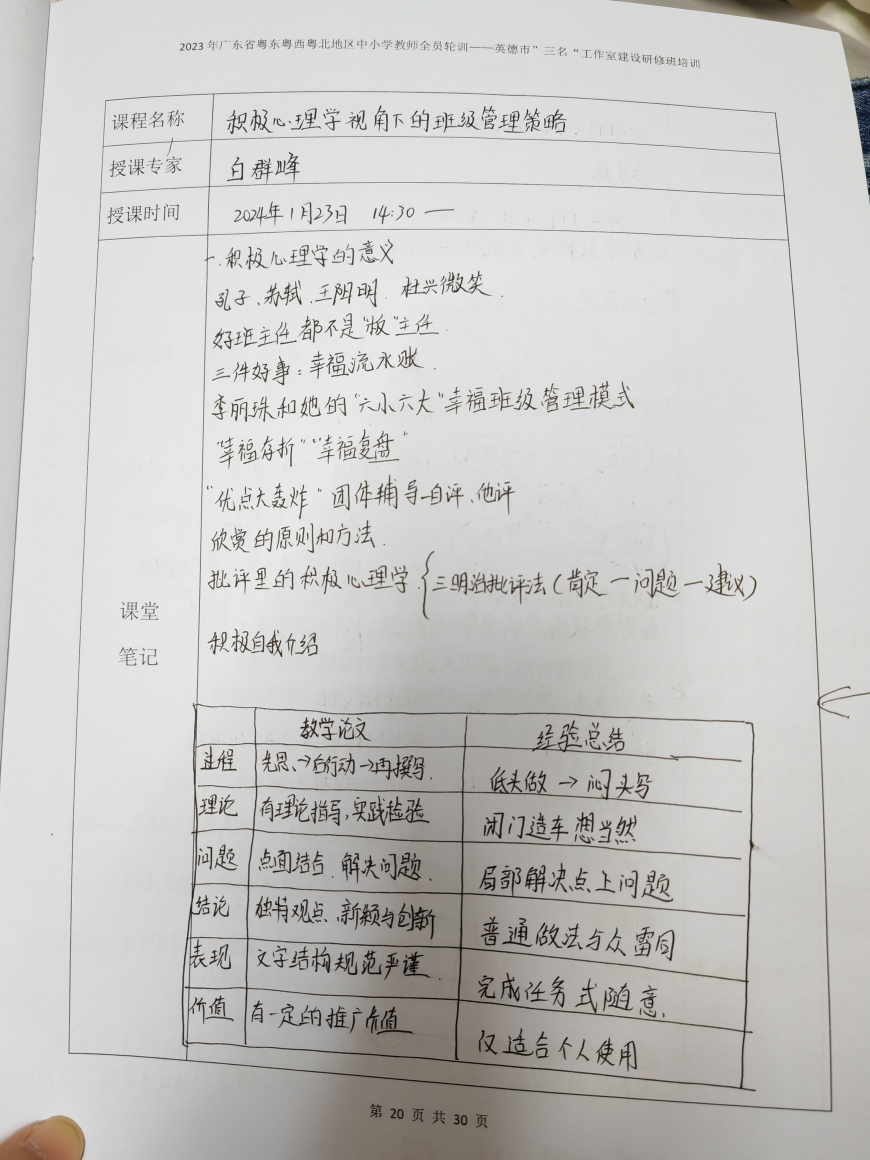 2023年广东省粤东粤西粤北地区中小学教师全员轮训——英德市”三名“工作室建设研修班培训
课程名称 积极心理学视角下的班级管理策略
授课专家 白群峰
授课时间 2024年1月23日 14:30 —
一.积极心理学的意义
孔子、苏轼、王阳明、杜兴微笑.
好班主任都不是“板”主任.
三件好事:幸福流水账.
李丽珠和她的“六小六大”幸福班级管理模式
“幸福存折”“幸福复盘”
“优点大轰炸”团体辅导—自评、他评
欣赏的原则和方法.
批评里的积极心理学.{三明治批评法(肯定—问题—建议)
课堂
笔记
积极自我介绍
教学论文 经验总结
过程 先思→后行动→再撰写. 低头做→闷头写
理论 有理论指导,实践检验 闭门造车想当然
问题 点面结合.解决问题. 局部解决点上问题
结论 独特观点、新颖与创新 普通做法与众雷同
表现 文字结构规范严谨 完成任务式随意.
价值 有一定的推广价值 仅适合个人使用
第 20 页 共 30 页